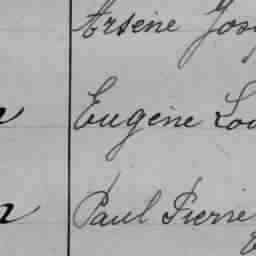 Arsène Jos
Eugène Lou
Paul Pierre